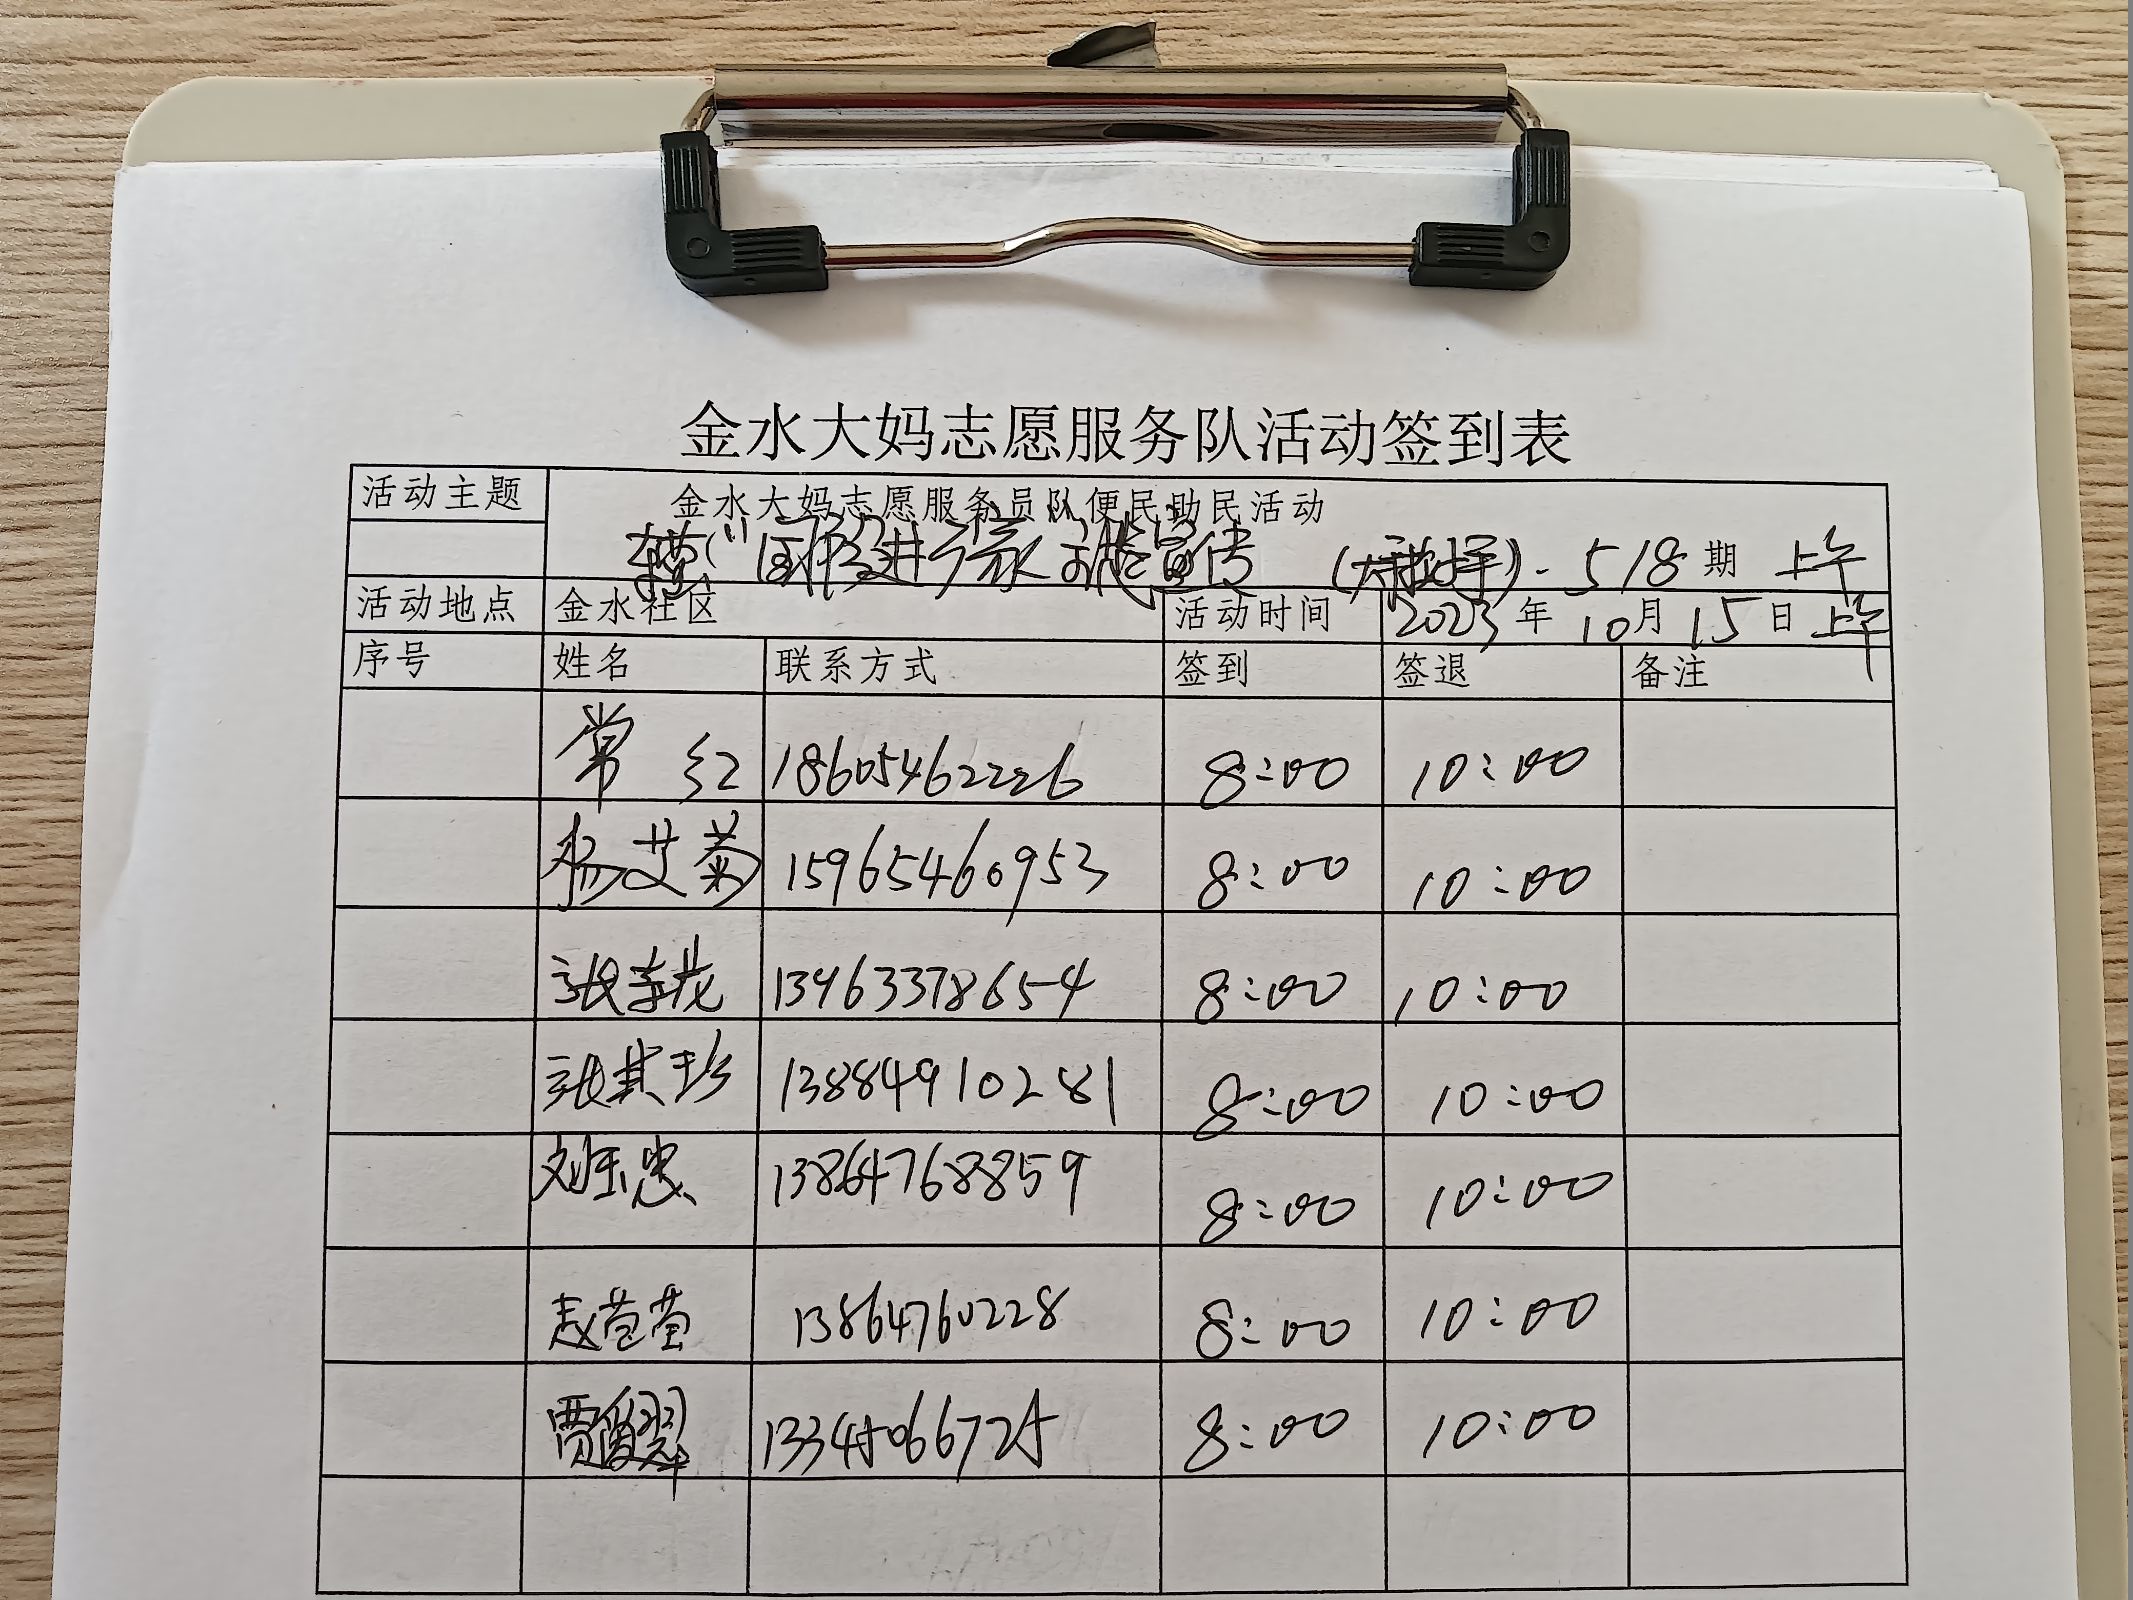 金水大妈志愿服务队活动签到表
活动主题 金水大妈志愿服务员队便民助民活动
进 家 宣传 518期 上午
活动地点 金水社区 活动时间 2023年10月15日上午
序号 姓名 联系方式 签到 签退 备注
常红 18605462226 8:00 10:00
杨艾菊 15965460953 8:00 10:00
张 13963378654 8:00 10:00
张其珍 13884910281 8:00 10:00
刘玉忠 13864768859 8:00 10:00
赵 13864760228 8:00 10:00
贾俊翠 13345066725 8:00 10:00